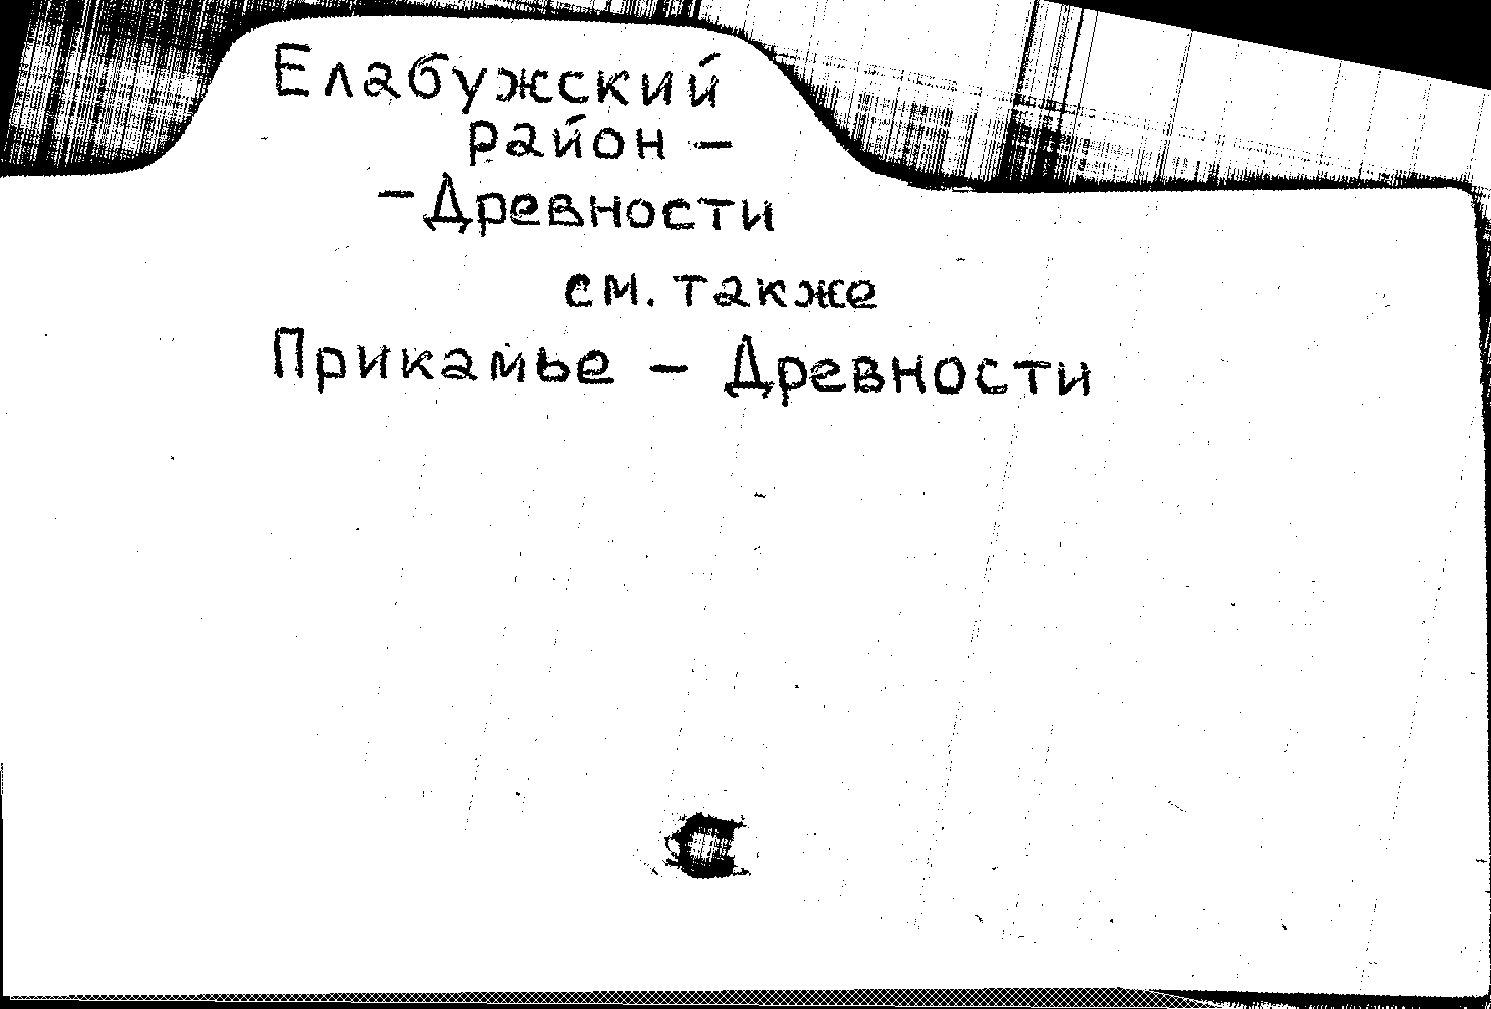 Елабужский
район —
— Древности
см. также
Прикамье — Древности